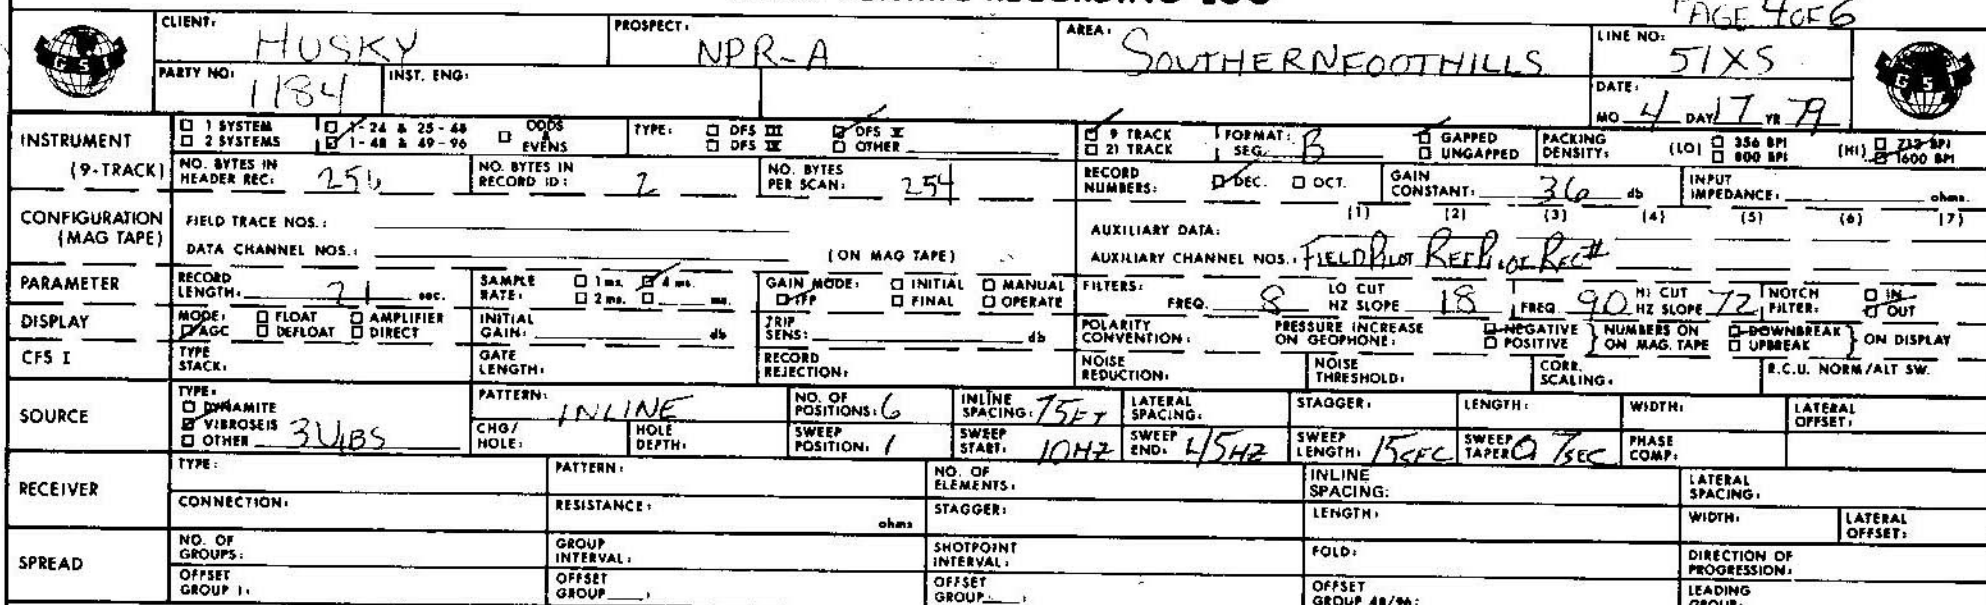 PAGE 4 OF 6
CLIENT: HUSKY PROSPECT: NPR-A AREA: SOUTHERN FOOTHILLS LINE NO: 51XS
GSI GSI
PARTY NO: 1184 INST. ENG: DATE: MO 4 DAY 17 YR 79
INSTRUMENT (9-TRACK)
1 SYSTEM 1-24 & 25-48 ODDS & EVENS TYPE: DFS III DFS V 9 TRACK FORMAT: SEG. B GAPPED PACKING DENSITY: (LO) 356 BPI (HI) 712 BPI
2 SYSTEMS 1-48 & 49-96 DFS IV OTHER 21 TRACK UNGAPPED 800 BPI 1600 BPI
NO. BYTES IN HEADER REC: 256 NO. BYTES IN RECORD ID: 2 NO. BYTES PER SCAN: 254 RECORD NUMBERS: DEC. OCT. GAIN CONSTANT: 36 db INPUT IMPEDANCE: ohms.
CONFIGURATION (MAG TAPE)
FIELD TRACE NOS.: AUXILIARY DATA: (1) (2) (3) (4) (5) (6) (7)
DATA CHANNEL NOS.: (ON MAG TAPE) AUXILIARY CHANNEL NOS.: FIELD PILOT REF PILOT REC #
PARAMETER
RECORD LENGTH: 21 sec. SAMPLE RATE: 1 ms. 4 ms. 2 ms. ms. GAIN MODE: INITIAL MANUAL IFP FINAL OPERATE FILTERS: FREQ. 8 LO CUT HZ SLOPE 18 FREQ 90 HI CUT HZ SLOPE 72 NOTCH FILTER: IN OUT
DISPLAY
MODE: FLOAT AMPLIFIER AGC DEFLOAT DIRECT INITIAL GAIN: db TRIP SENS: db POLARITY CONVENTION: PRESSURE INCREASE ON GEOPHONE: NEGATIVE POSITIVE NUMBERS ON ON MAG. TAPE DOWNBREAK UPBREAK ON DISPLAY
CFS I
TYPE STACK: GATE LENGTH: RECORD REJECTION: NOISE REDUCTION: NOISE THRESHOLD: CORR. SCALING: R.C.U. NORM/ALT SW.
SOURCE
TYPE: DYNAMITE VIBROSEIS OTHER 3 VIBS PATTERN: INLINE NO. OF POSITIONS: 6 INLINE SPACING: 75FT LATERAL SPACING: STAGGER: LENGTH: WIDTH: LATERAL OFFSET:
CHG/HOLE: HOLE DEPTH: SWEEP POSITION: 1 SWEEP START: 10HZ SWEEP END: 45HZ SWEEP LENGTH: 15SEC SWEEP TAPER 0.7SEC PHASE COMP:
RECEIVER
TYPE: PATTERN: NO. OF ELEMENTS: INLINE SPACING: LATERAL SPACING:
CONNECTION: RESISTANCE: ohms STAGGER: LENGTH: WIDTH: LATERAL OFFSET:
SPREAD
NO. OF GROUPS: GROUP INTERVAL: SHOTPOINT INTERVAL: FOLD: DIRECTION OF PROGRESSION:
OFFSET GROUP 1: OFFSET GROUP : OFFSET GROUP : OFFSET GROUP 48/96: LEADING GROUP: